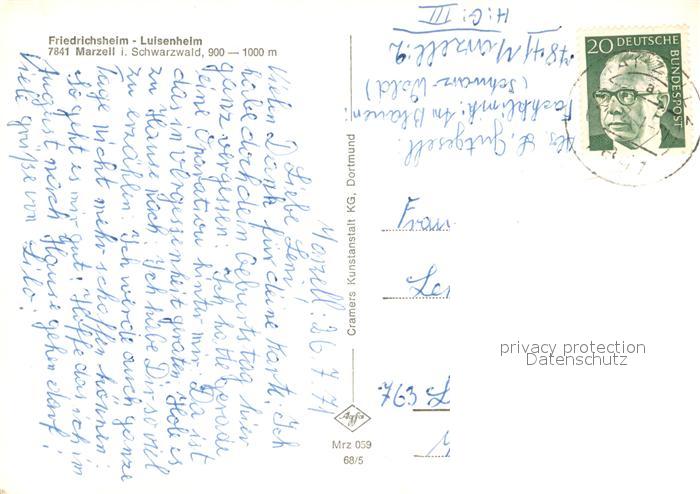 Friedrichsheim - Luisenheim
7841 Marzell i. Schwarzwald, 900 — 1000 m
Marzell. 26.7.71
Liebe Leni!
Vielen Dank für deine Karte. Ich
habe doch dein Geburtstag hier
ganz vergessen. Ich hatte gerade
eine Operation hinter mir. Da ist
das in Vergessenheit graten. Hole es
zu Hause nach. Ich habe Dir so viel
zu erzählen. Ich werde auch ganze
Tage nicht mehr schaffen können.
So geht es mir gut. Hoffe das ich im
August nach Hause gehen darf!
Viele grüße von Lilo.
Cramers Kunstanstalt KG, Dortmund
Abs. L. Gutgesell.
Fachklinik: Im Blauen:
(Schwarz-Wald)
7841 Marzell: 2
H: G: III
20 DEUTSCHE
BUNDESPOST
Frau
763 L
privacy protection
Datenschutz
Agfa
Mrz 059
68/5